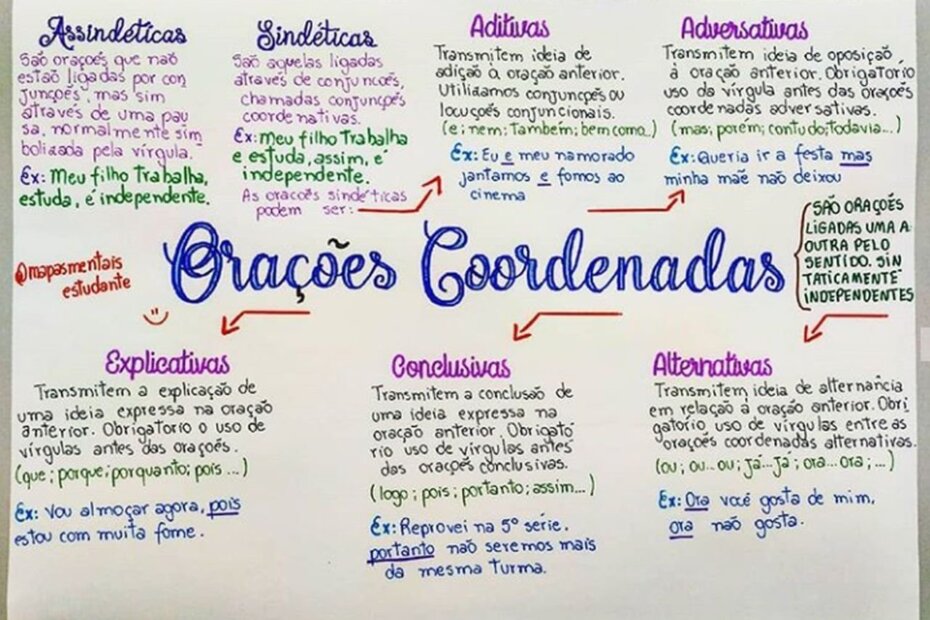 Assindéticas
São orações que não
estão ligadas por con
junções, mas sim
através de uma pau
sa, normalmente sim
bolizada pela vírgula.
Ex: Meu filho trabalha,
estuda, é independente.
Sindéticas
São aquelas ligadas
através de conjunções,
chamadas conjunções
coordenativas.
Ex: Meu filho trabalha
e estuda, assim, é
independente.
As orações sindéticas
podem ser:
Aditivas
Transmitem ideia de
adição à oração anterior.
Utilizamos conjunções ou
locuções conjuncionais.
(e; nem; também; bem como...)
Ex: Eu e meu namorado
jantamos e fomos ao
cinema
Adversativas
Transmitem ideia de oposição
à oração anterior. Obrigatorio
uso da vírgula antes das orações
coordenadas adversativas.
(mas; porém; contudo; todavia...)
Ex: Queria ir a festa mas
minha mãe não deixou
@mapasmentais
estudante
Orações Coordenadas
SÃO ORAÇÕES
LIGADAS UMA A
OUTRA PELO
SENTIDO. SIN
TATICAMENTE
INDEPENDENTES
Explicativas
Transmitem a explicação de
uma ideia expressa na oração
anterior. Obrigatorio o uso de
vírgulas antes das orações.
(que; porque; porquanto; pois...)
Ex: Vou almoçar agora, pois
estou com muita fome.
Conclusivas
Transmitem a conclusão de
uma ideia expressa na
oração anterior. Obrigató
rio uso de vírgulas antes
das orações conclusivas.
(logo; pois; portanto; assim...)
Ex: Reprovei na 5º série,
portanto não seremos mais
da mesma turma.
Alternativas
Transmitem ideia de alternância
em relação à oração anterior. Obri
gatório uso de vírgulas entre as
orações coordenadas alternativas.
(ou; ou... ou; já...já; ora...ora;...)
Ex: Ora você gosta de mim,
ora não gosta.